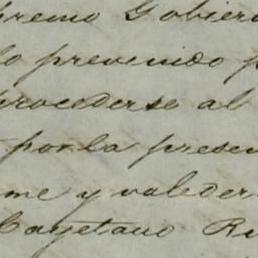 premo Gobier
lo prevenido p
procederse al
por la presen
me y valeder
Cayetano Ru